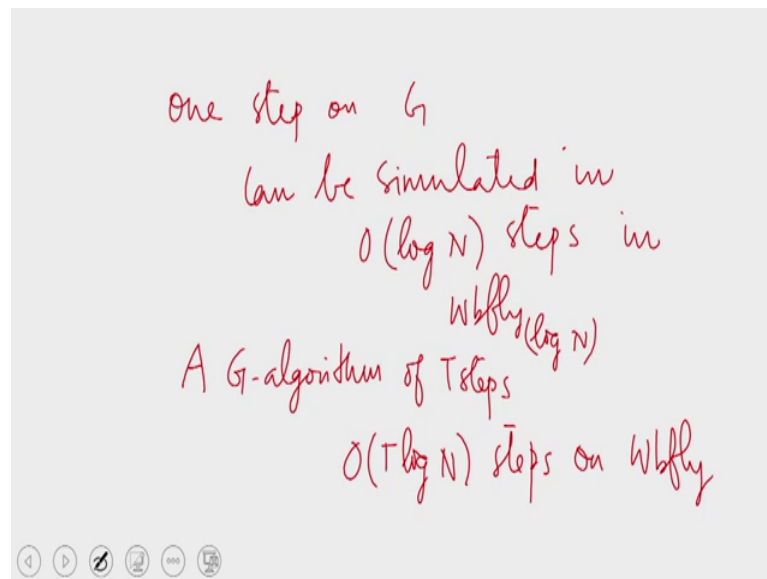 one step on G
can be simulated in
O(log N) steps in
Wbfly(log N)
A G-algorithm of T steps
O(T log N) steps on Wbfly